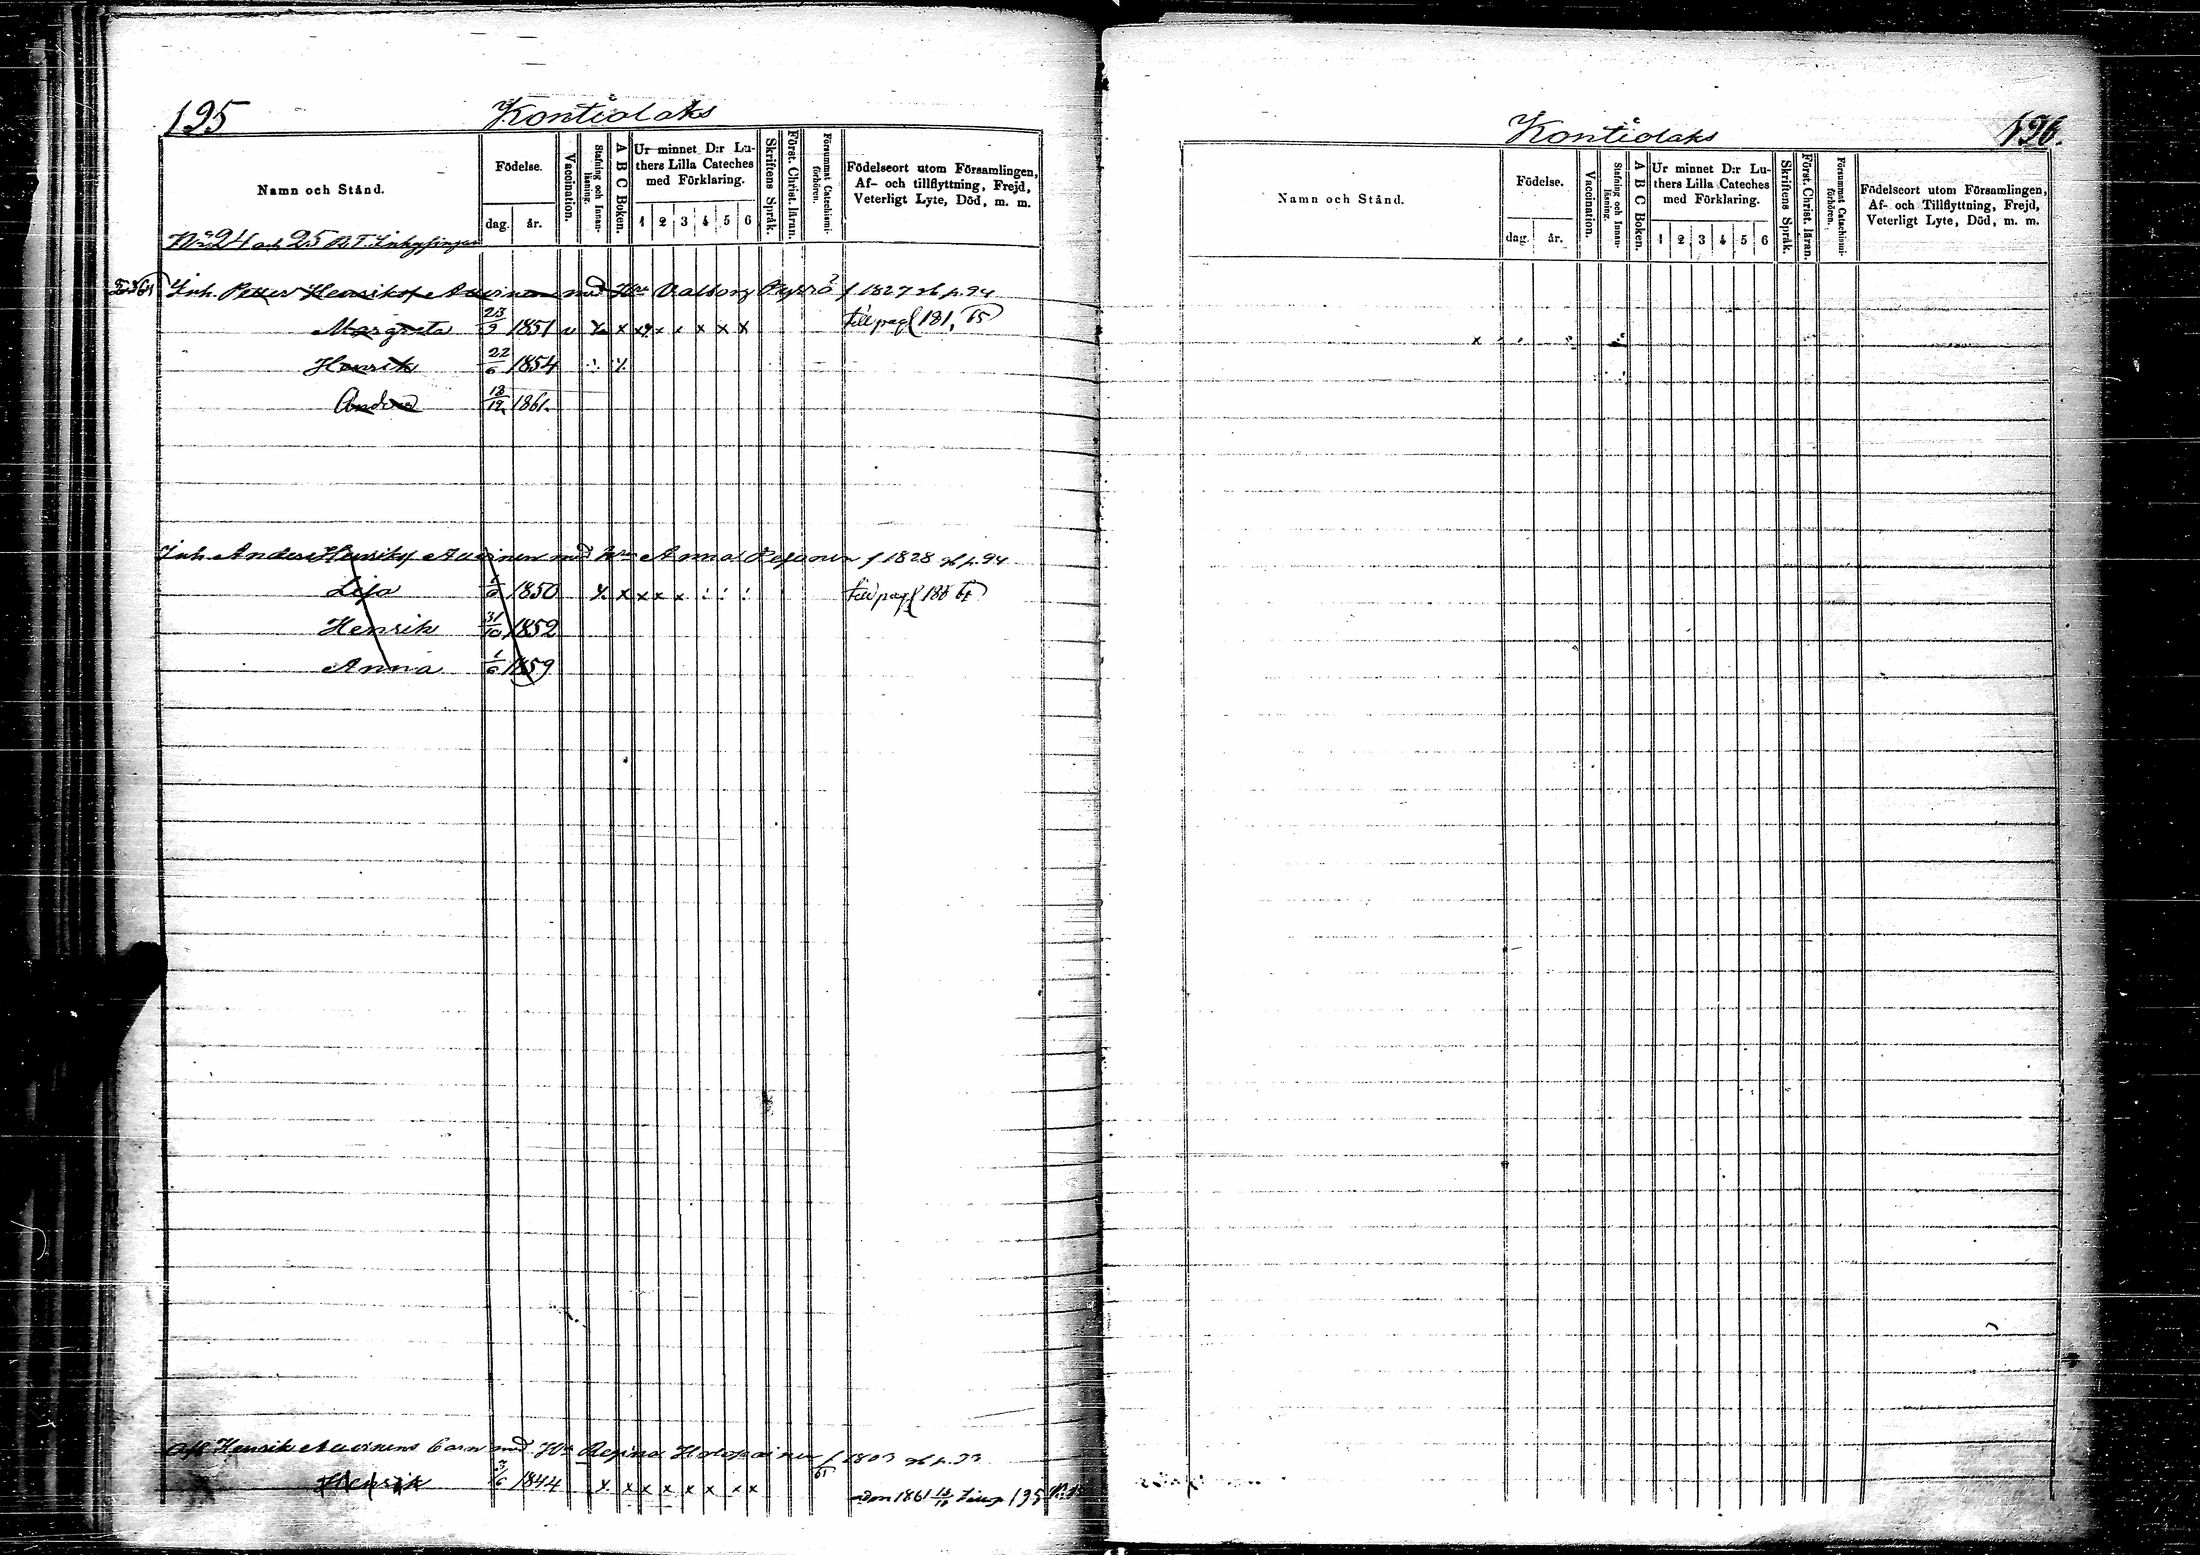 195
Kontiolaks
Namn och Stånd.
Födelse.
dag.
år.
Vaccination.
Stafning och Innanläsning.
A B C Boken.
Ur minnet D:r Lu-
thers Lilla Cateches
med Förklaring.
1 2 3 4 5 6
Skriftens Språk.
Först. Christ. läran.
Försummat Catechismi-
förhören.
Födelseort utom Församlingen,
Af- och tillflyttning, Frejd,
Veterligt Lyte, Död, m. m.
No 24 och 25
Inh. Petter Auvinen med Valborg f 1827
Margreta 1851 v x x x x x x till pag 181,
Henrik 22/6 1854
Anders 13/12 1861.
Inh. Anders Auvinen med Anna f 1828
Lisa 1850 x x x x : : : till pag
Henrik 31/10 1852
Anna 1/6 1859
Henrik Auvinens barn med Regina Holopainen
Henrik 1844 x x x x x x x x
1861 135
Kontiolaks
196.
Namn och Stånd.
Födelse.
dag.
år.
Vaccination.
Stafning och Innan-
läsning.
A B C Boken.
Ur minnet D:r Lu-
thers Lilla Cateches
med Förklaring.
1 2 3 4 5 6
Skriftens Språk.
Först. Christ. läran.
Försummat Catechismi-
förhören.
Födelseort utom Församlingen,
Af- och Tillflyttning, Frejd,
Veterligt Lyte, Död, m. m.